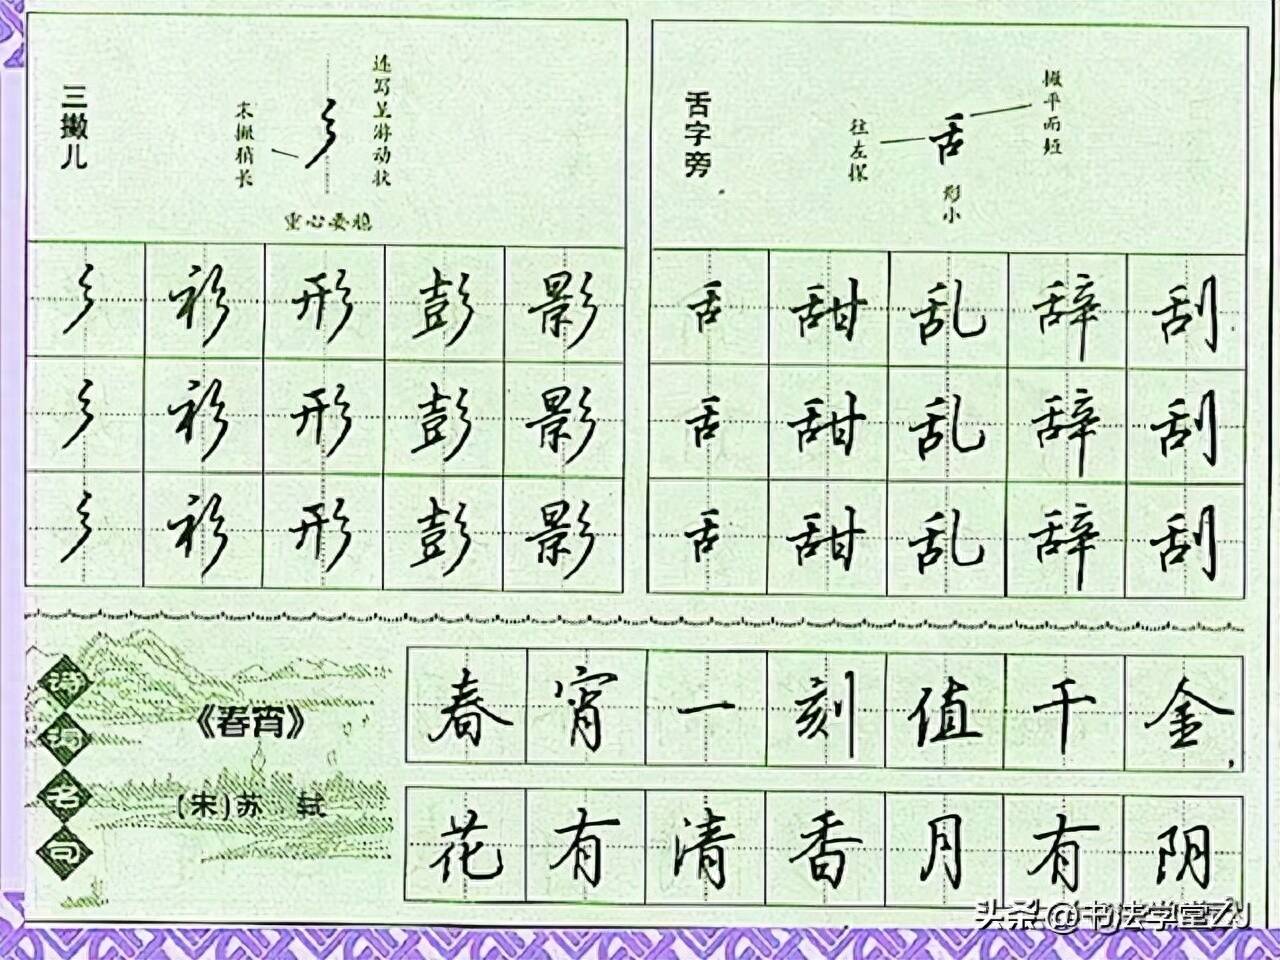 三撇儿
连写呈游动状
末撇稍长
重心要稳
彡 衫 形 彭 影
彡 衫 形 彭 影
彡 衫 形 彭 影
舌字旁
撇平而短
往左探
形小
舌 甜 乱 辞 刮
舌 甜 乱 辞 刮
舌 甜 乱 辞 刮
诗词名句
《春宵》
(宋)苏 轼
春宵一刻值千金,
花有清香月有阴
头条@书法学堂ZJ